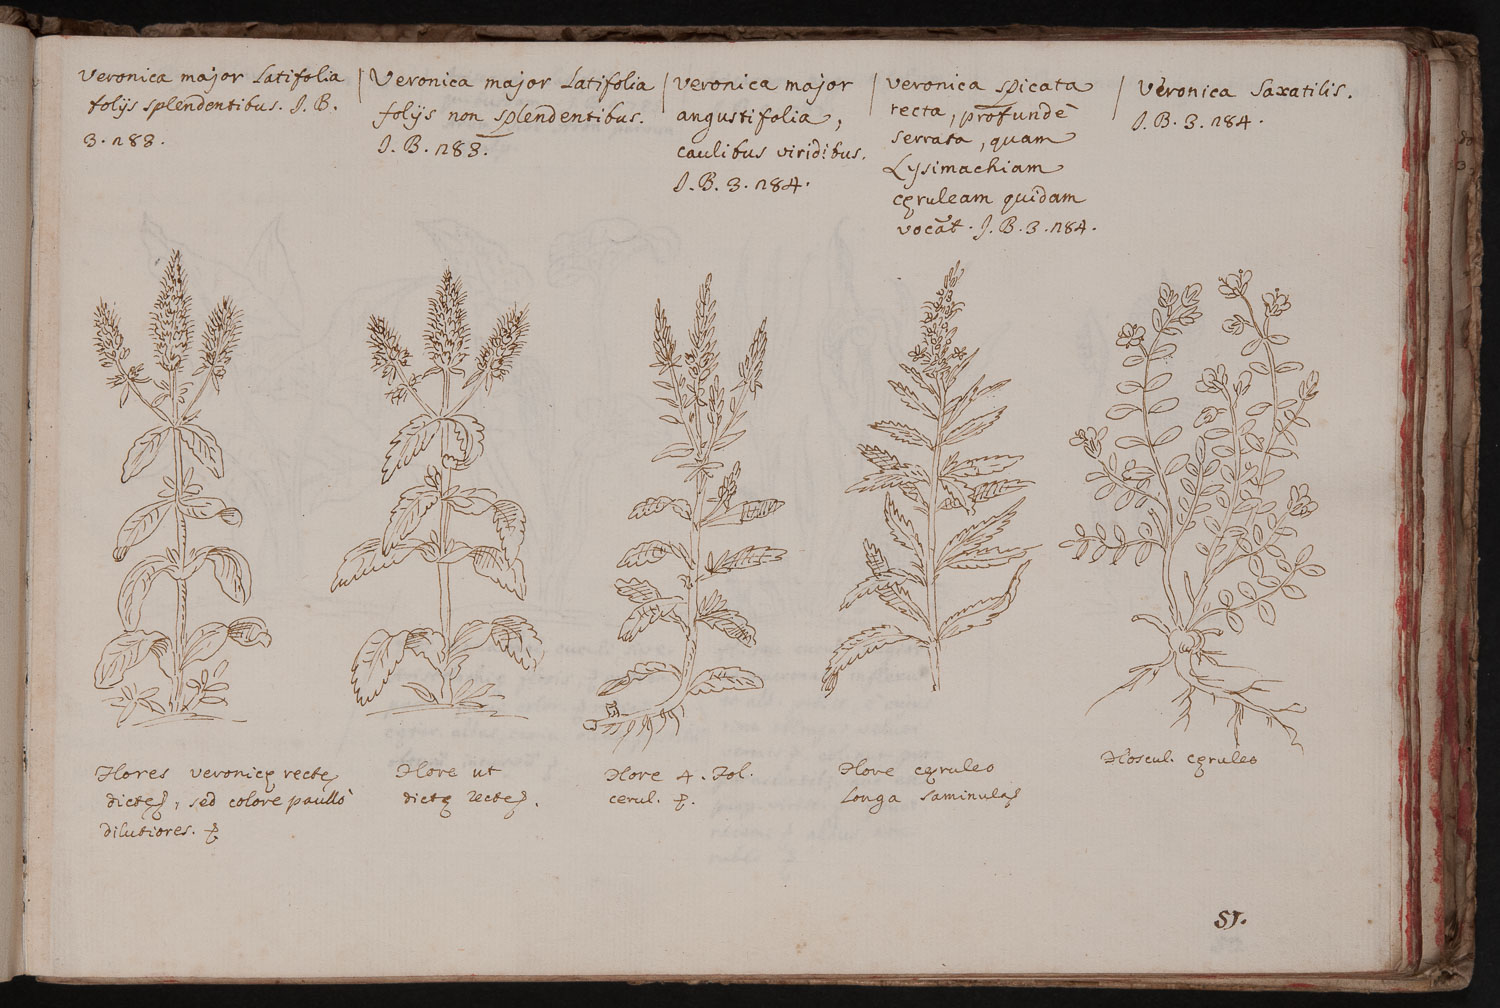 Veronica major Latifolia
folijs splendentibus. J. B.
3. 283.
Veronica major Latifolia
folijs non splendentibus.
J. B. 283.
Veronica major
angustifolia,
caulibus viridibus.
J. B. 3. 284.
Veronica spicata
recta, profundè
serrata, quam
Lysimachiam
cęruleam quidam
vocāt. J. B. 3. 284.
Veronica Saxatilis.
J. B. 3. 284.
Flores veronicę recte
dictę, sed colore paullò
dilutiores.
Flore ut
dictę recte.
Flore 4. Fol.
cerul.
Flore cęruleo
Longa
Floscul. cęruleo
51.